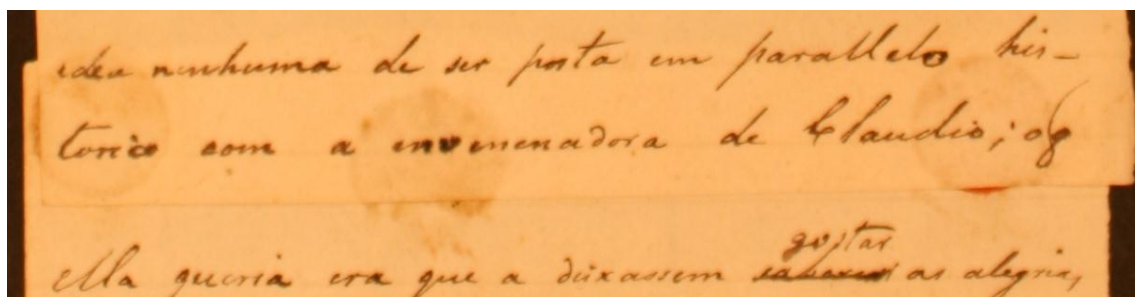 idea nenhuma de ser posta em parallelo his-
torico com a envenenadora de Claudio; o q
gostar
Ella queria era que a deixassem as alegrias,